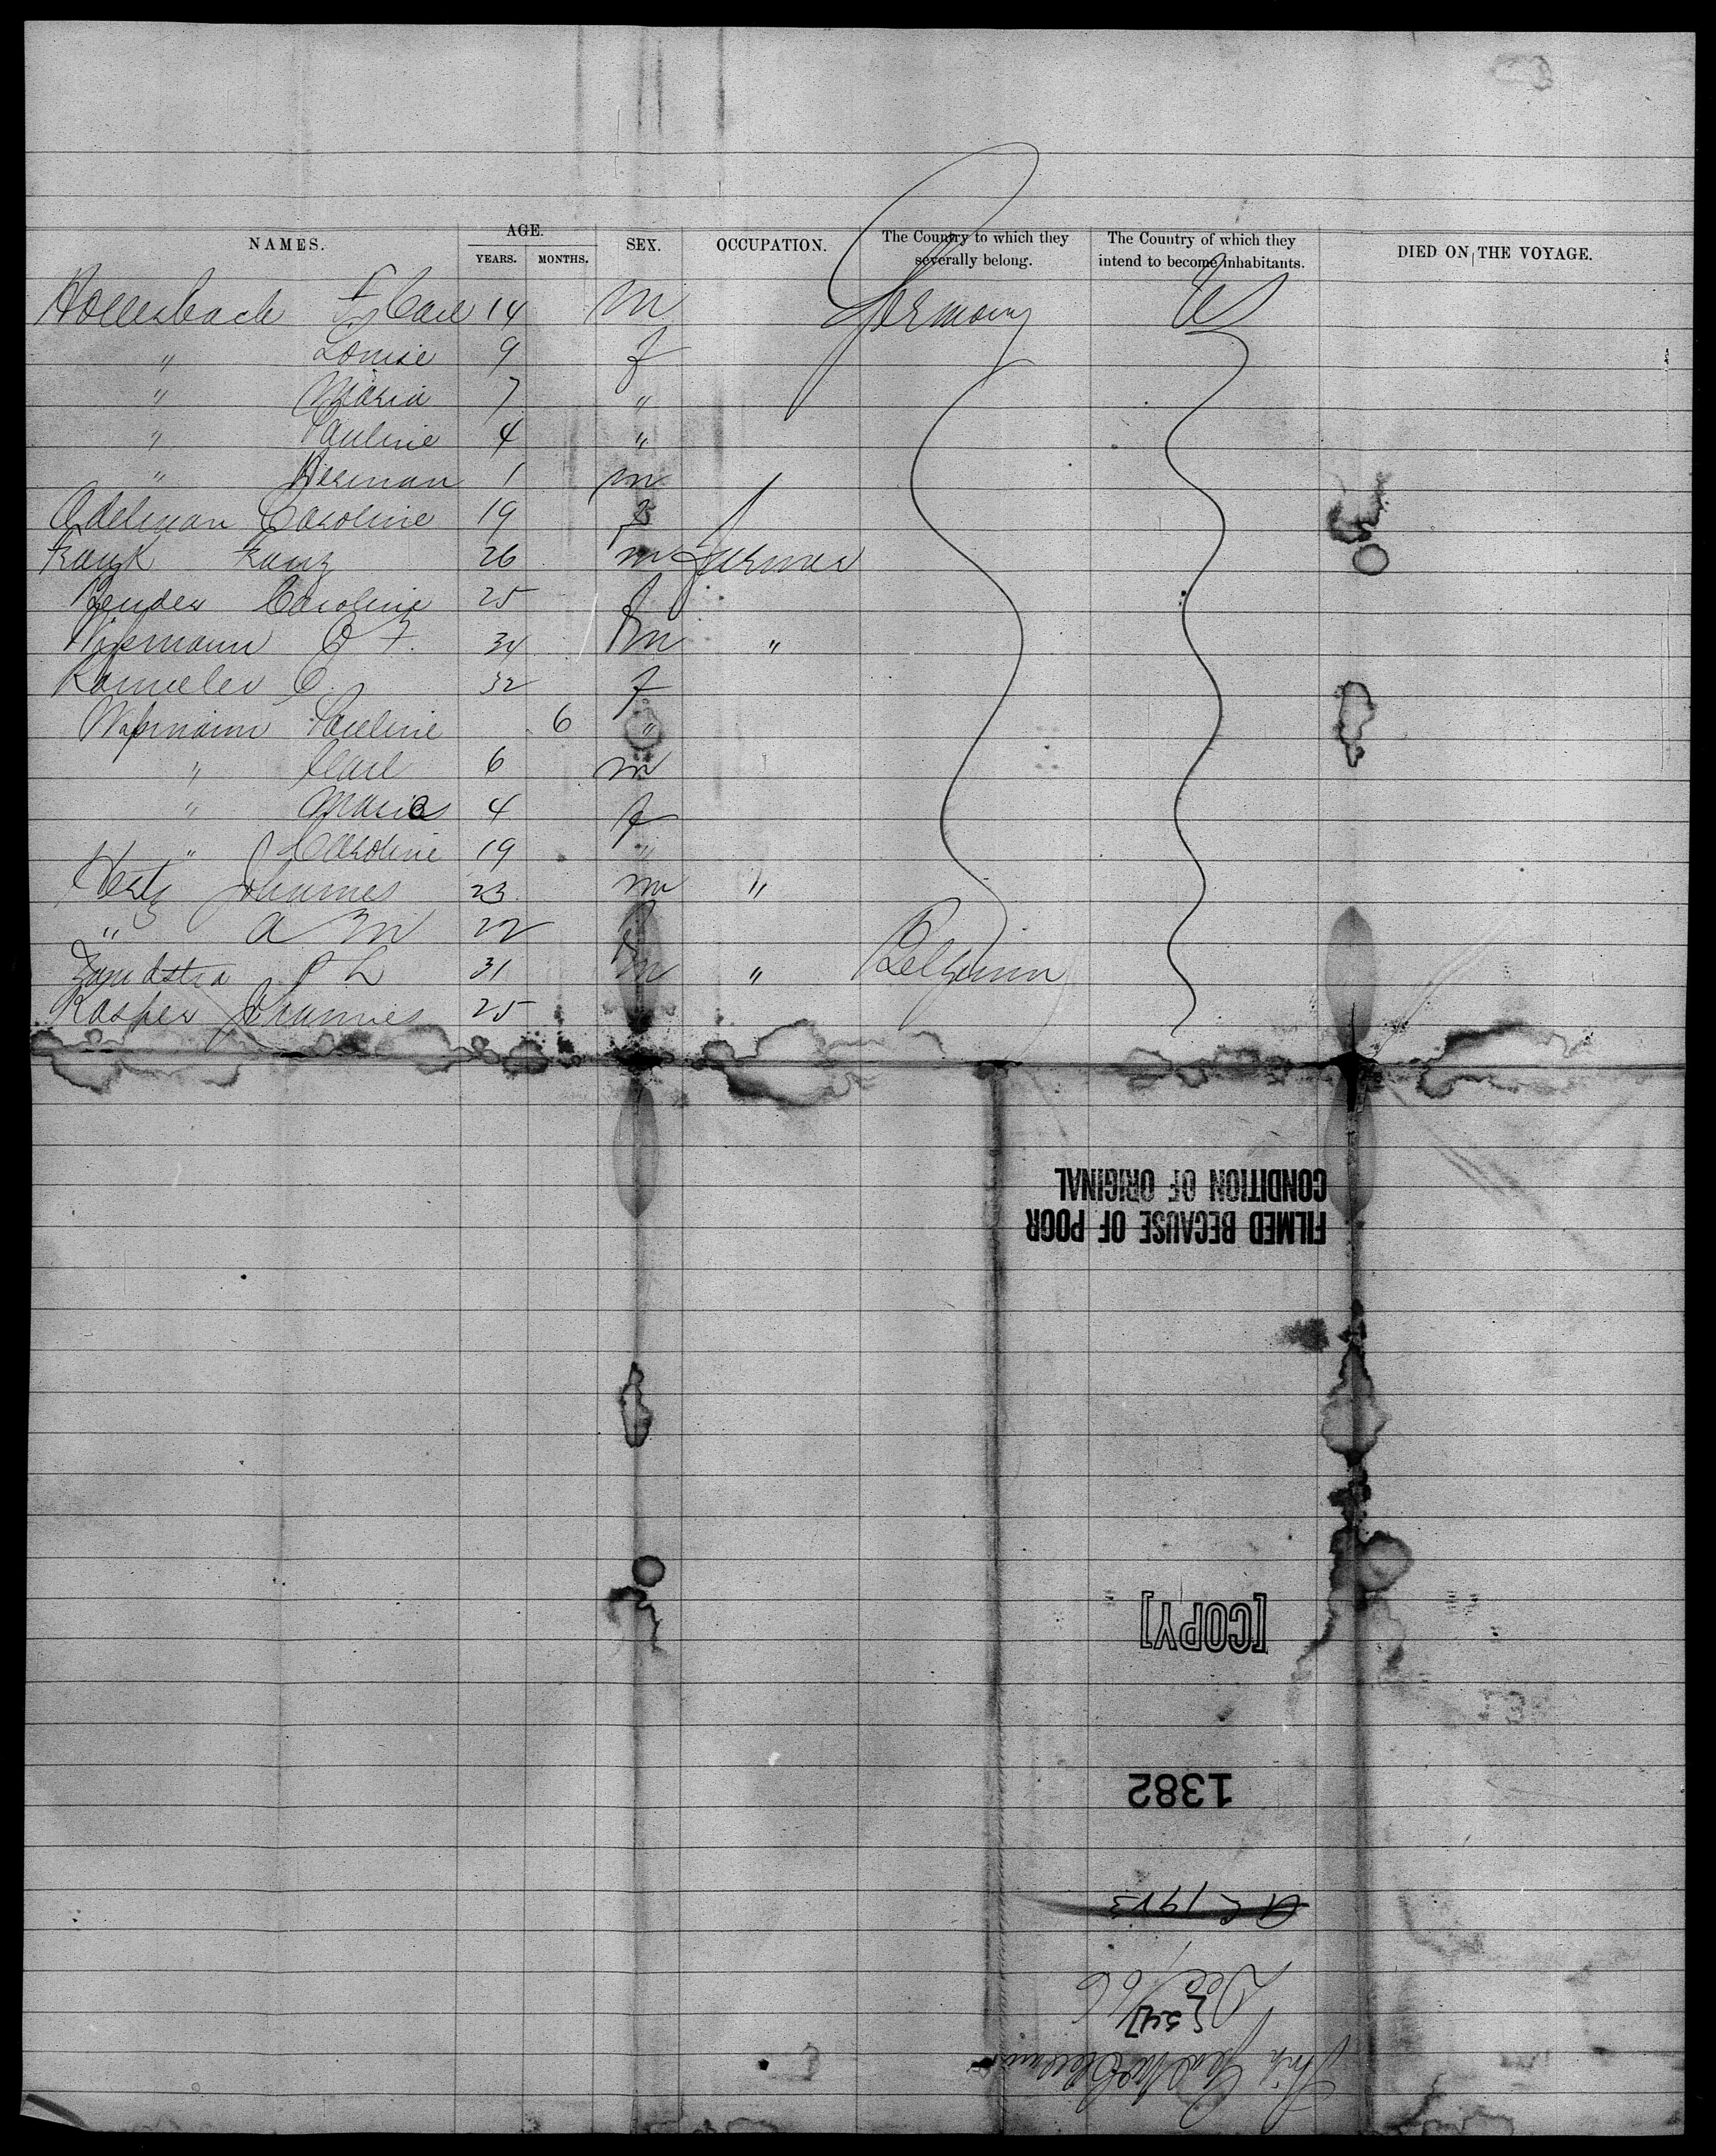 NAMES. AGE. YEARS. MONTHS. SEX. OCCUPATION. The Country to which they severally belong. The Country of which they intend to become inhabitants. DIED ON THE VOYAGE.
Hollesbach F Carl 14 m Germany US
" Louise 9 f
" Maria 7 "
" Pauline 4 "
" Herman 1 m
Adelman Caroline 19 f
Frank Franz 26 m Farmer
Bender Caroline 25 f
34 m "
C 32 f
Pauline 6 "
" Carl 6 m
" Maria 4 f
" Caroline 19 "
Hertz Johannes 23 m "
" A M 22 f
Zandstra P L 31 m " Belgium
Kasper Johannes 25
FILMED BECAUSE OF POOR
CONDITION OF ORIGINAL
[COPY]
1382
Dec /66